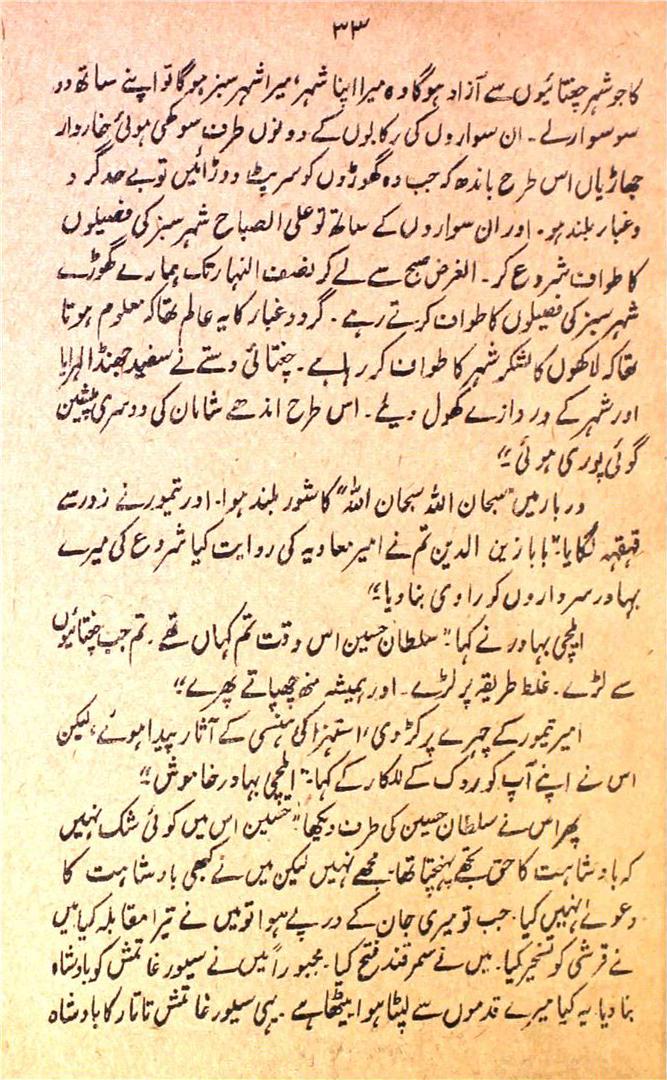 ۳۳
کا جو شہر چغتائیوں سے آزاد ہوگا وہ میرا اپنا شہر، میرا شہر سبز ہوگا تو اپنے ساتھ دو
سو سوار لے۔ ان سواروں کی رکابوں کے دونوں طرف سوکھی ہوئی خاردار
جھاڑیاں اس طرح باندھ کہ جب وہ گھوڑوں کو سرپٹ دوڑائیں تو بے حد گرد
و غبار بلند ہو۔ اور ان سواروں کے ساتھ تو علی الصباح شہر سبز کی فصیلوں
کا طواف شروع کر۔ الغرض صبح سے لے کر نصف النہار تک ہمارے گھوڑے
شہر سبز کی فصیلوں کا طواف کرتے رہے۔ گرد و غبار کا یہ عالم تھا کہ معلوم ہوتا
تھا کہ لاکھوں کا لشکر شہر کا طواف کر رہا ہے۔ چغتائی دستے نے سفید جھنڈا لہرایا
اور شہر کے دروازے کھول دیئے۔ اس طرح اندھے شامان کی دوسری پیشین
گوئی پوری ہوئی۔"
دربار میں "سبحان اللہ سبحان اللہ" کا شور بلند ہوا۔ اور تیمور نے زور سے
قہقہہ لگایا۔ "بابا زین الدین تم نے امیر معاویہ کی روایت کیا شروع کی میرے
بہادر سرداروں کو راوی بنا دیا۔"
ایلچی بہادر نے کہا۔ "سلطان حسین اس وقت تم کہاں تھے۔ تم جب چغتائیوں
سے لڑے۔ غلط طریقہ پر لڑے۔ اور ہمیشہ منھ چھپاتے پھرے۔"
امیر تیمور کے چہرے پر کڑوی، استہزا کی ہنسی کے آثار پیدا ہوئے، لیکن
اس نے اپنے آپ کو روک کے للکار کے کہا۔ "ایلچی بہادر خاموش۔"
پھر اس نے سلطان حسین کی طرف دیکھا "حسین اس میں کوئی شک نہیں
کہ بادشاہت کا حق تجھے پہنچتا تھا۔ مجھے نہیں لیکن میں نے کبھی بادشاہت کا
دعوےٰ نہیں کیا۔ جب تو میری جان کے درپے ہوا تو میں نے تیرا مقابلہ کیا میں
نے قرشی کو تسخیر کیا۔ میں نے سمرقند فتح کیا۔ مجبوراً میں نے سیورغاتمش کو بادشاہ
بنا دیا۔ یہ کیا میرے قدموں سے لپٹا ہوا بیٹھا ہے۔ یہی سیورغاتمش تاتار کا بادشاہ